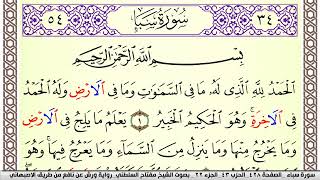 ٥٤ سُورَةُ سَبَإٍ ٣٤
بِسْمِ اللَّهِ الرَّحْمَٰنِ الرَّحِيمِ
الْحَمْدُ لِلَّهِ الَّذِي لَهُ مَا فِي السَّمَٰوَٰتِ وَمَا فِي الْأَرْضِ وَلَهُ الْحَمْدُ
فِي الْأَخِرَةِ وَهُوَ الْحَكِيمُ الْخَبِيرُ ١ يَعْلَمُ مَا يَلِجُ فِي الْأَرْضِ
وَمَا يَخْرُجُ مِنْهَا وَمَا يَنزِلُ مِنَ السَّمَآءِ وَمَا يَعْرُجُ فِيهَا وَهُوَ
سورة سباء الصفحة ٤٢٨ الحزب ٤٣ الجزء ٢٢ بصوت الشيخ مفتاح السلطني رواية ورش عن نافع من طريق الاصبهاني